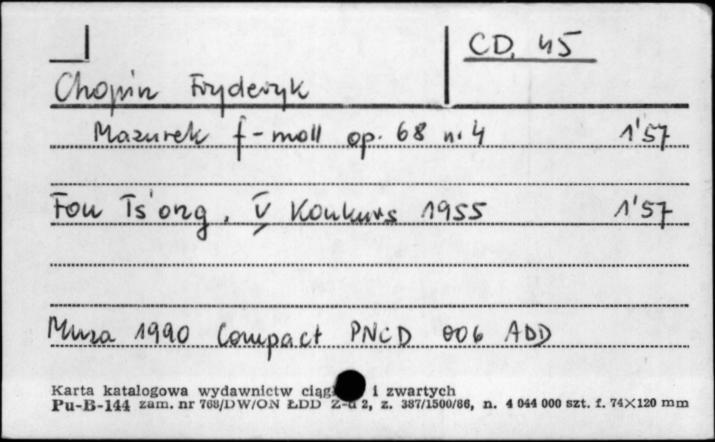 CD. 45
Chopin Fryderyk
Mazurek f-moll op. 68 n. 4 1'57
Fou Ts'ong, V Konkurs 1955 1'57
Muza 1990 Compact PNCD 006 ADD
Karta katalogowa wydawnictw i zwartych
Pu-B-144 zam. nr 768/DW/ON ŁDD Z-d 2, z. 387/1500/86, n. 4 044 000 szt. f. 74×120 mm